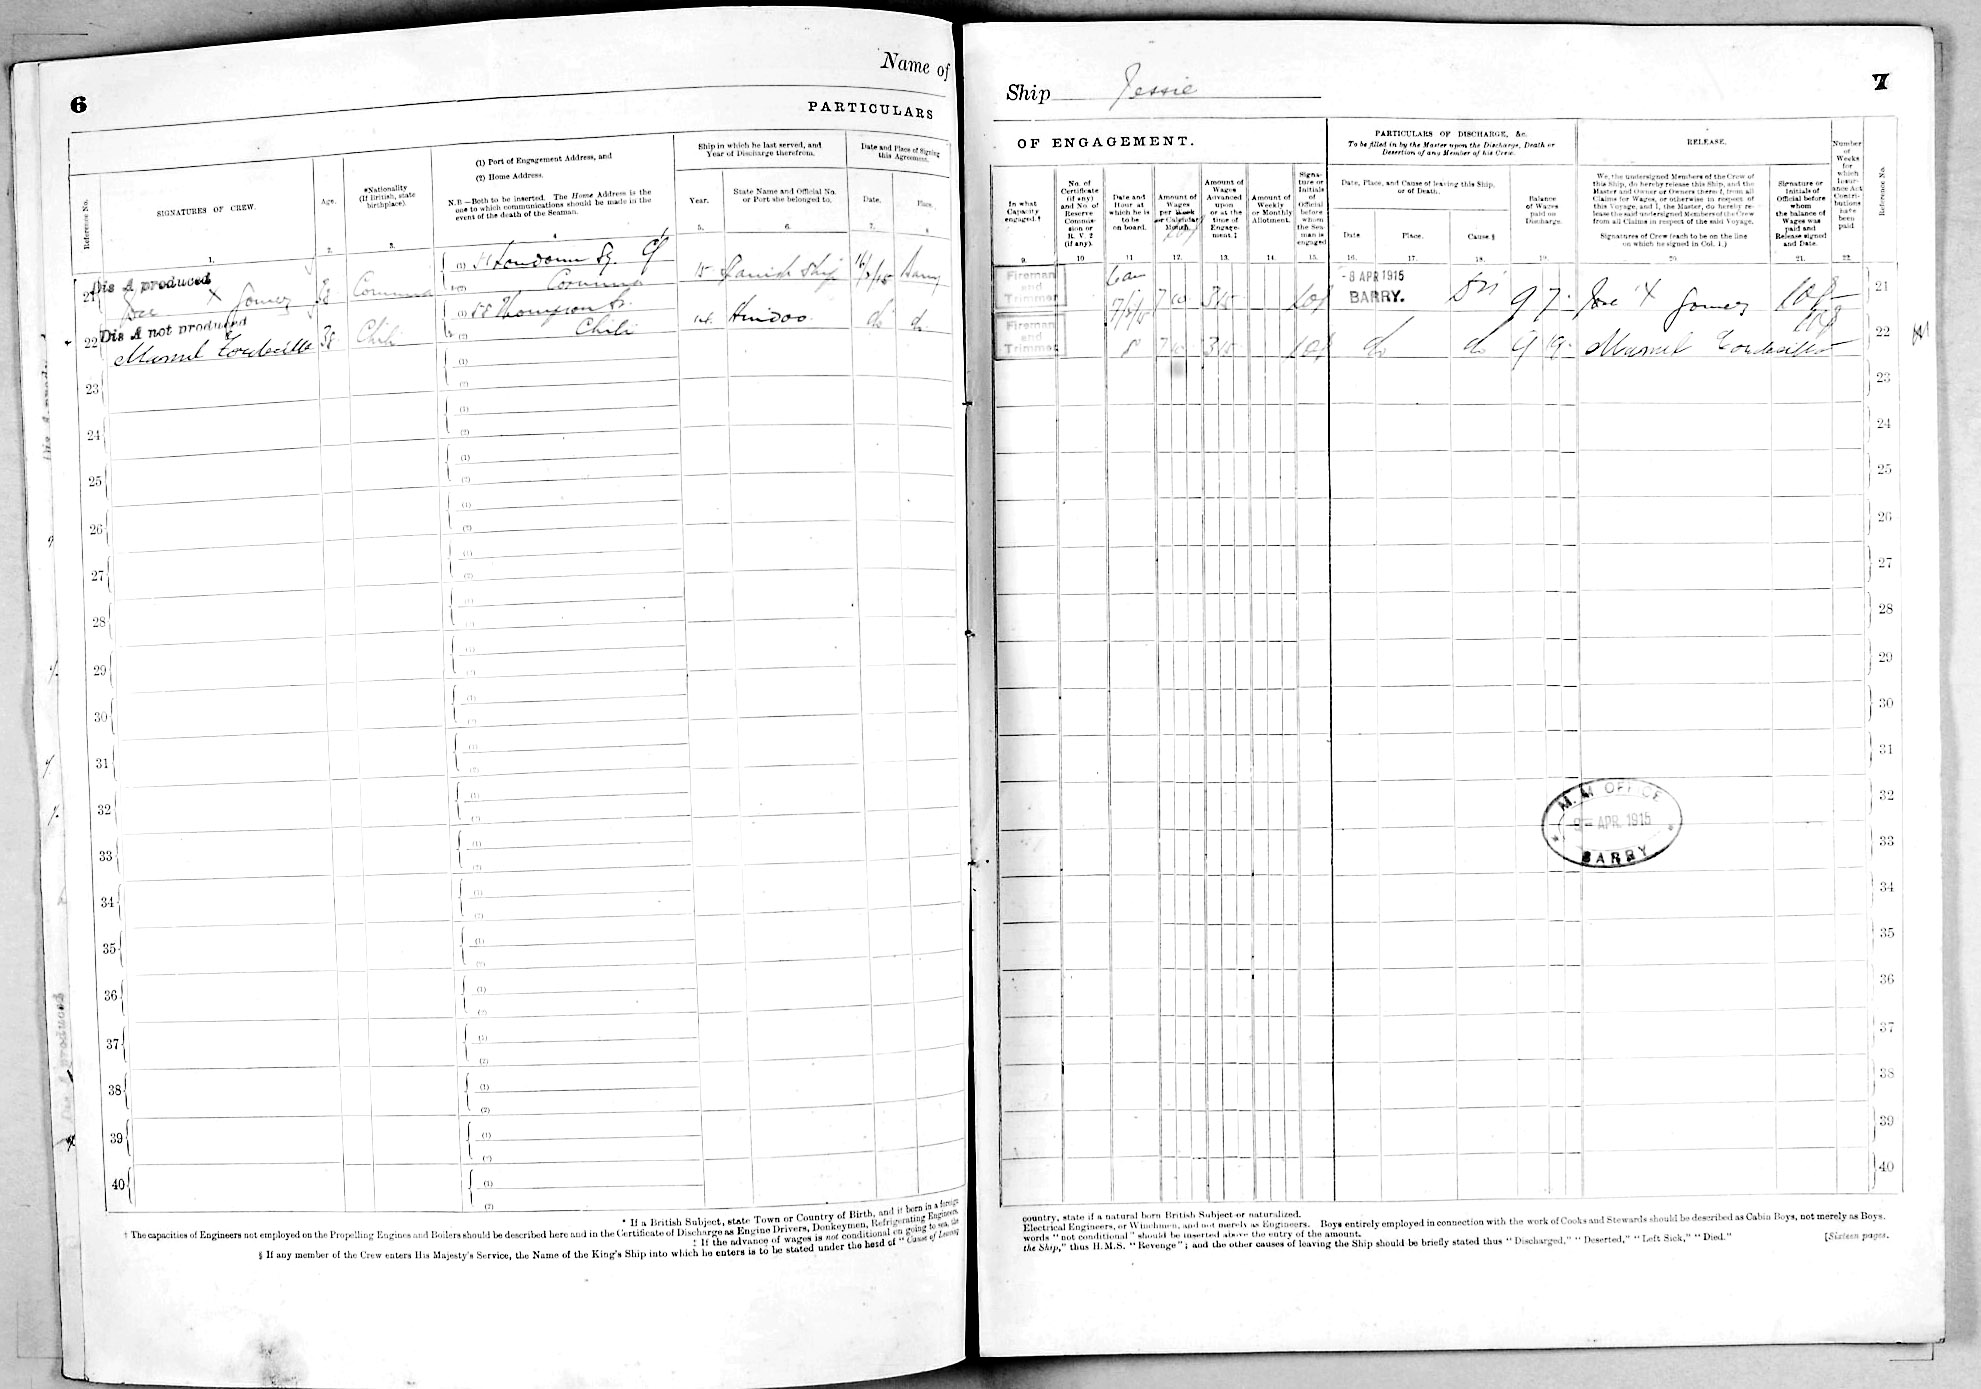 6
Name of
PARTICULARS
Reference No.
SIGNATURES OF CREW.
Age.
*Nationality
(If British, state
birthplace).
(1) Port of Engagement Address, and
(2) Home Address.
N.B—Both to be inserted. The Home Address is the
one to which communications should be made in the
event of the death of the Seaman.
Ship in which he last served, and
Year of Discharge therefrom.
Year.
State Name and Official No.
or Port she belonged to.
Date and Place of Signing
this Agreement.
Date.
Place.
1. 2. 3. 4. 5. 6. 7. 8.
21 Dis A produced
Jose X Gomez 38 (1) Sq.
(2) Corunna 15 Spanish Ship 16/2/15 Barry
22 Dis A not produced
Manuel 38 Chili (1) 58 Thompson St.
(2) Chili 14 Hindoo do do
23 (1)
(2)
24 (1)
(2)
25 (1)
(2)
26 (1)
(2)
27 (1)
(2)
28 (1)
(2)
29 (1)
(2)
30 (1)
(2)
31 (1)
(2)
32 (1)
(2)
33 (1)
(2)
34 (1)
(2)
35 (1)
(2)
36 (1)
(2)
37 (1)
(2)
38 (1)
(2)
39 (1)
(2)
40 (1)
(2)
* If a British Subject, state Town or Country of Birth, and if born in a foreign
† The capacities of Engineers not employed on the Propelling Engines and Boilers should be described here and in the Certificate of Discharge as Engine Drivers, Donkeymen, Refrigerating Engineers
‡ If the advance of wages is not conditional on going to sea, the
§ If any member of the Crew enters His Majesty's Service, the Name of the King's Ship into which he enters is to be stated under the head of "Cause of Leaving
Ship Jessie
7
OF ENGAGEMENT.
PARTICULARS OF DISCHARGE, &c.
To be filled in by the Master upon the Discharge, Death or
Desertion of any Member of his Crew.
RELEASE.
In what
Capacity
engaged †
No. of
Certificate
(if any)
and No. of
Reserve
Commis-
sion or
R. V. 2
(if any).
Date and
Hour at
which he is
to be
on board.
Amount of
Wages
per Week
or Calendar
Month.
Amount of
Wages
Advanced
upon
or at the
time of
Engage-
ment.‡
Amount of
Weekly
or Monthly
Allotment.
Signa-
ture or
Initials
of
Official
before
whom
the Sea-
man is
engaged
Date, Place, and Cause of leaving this Ship,
or of Death.
Date
Place.
Cause.§
Balance
of Wages
paid on
Discharge.
We, the undersigned Members of the Crew of
this Ship, do hereby release this Ship, and the
Master and Owner or Owners thereof, from all
Claims for Wages, or otherwise in respect of
this Voyage, and I, the Master, do hereby re-
lease the said undersigned Members of the Crew
from all Claims in respect of the said Voyage.
Signatures of Crew (each to be on the line
on which he signed in Col. 1.)
Signature or
Initials of
Official before
whom
the balance of
Wages was
paid and
Release signed
and Date.
Number
of
Weeks
for
which
Insur-
ance Act
Contri-
butions
have
been
paid
Reference No.
9. 10. 11. 12. 13. 14. 15. 16. 17. 18. 19. 20. 21. 22.
Fireman
and
Trimmer 6am 7 10 3 15 -8 APR 1915
BARRY. Dis 9 7 Jose X Gomez 21
Fireman
and
Trimmer 7 10 3 15 do do 9 19 Manuel 22
23
24
25
26
27
28
29
30
31
32
33
34
35
36
37
38
39
40
M. M OFFICE
9- APR 1915
BARRY
country, state if a natural born British Subject or naturalized.
Electrical Engineers, or Winchmen, and not merely as Engineers. Boys entirely employed in connection with the work of Cooks and Stewards should be described as Cabin Boys, not merely as Boys.
words "not conditional" should be inserted above the entry of the amount.
the Ship," thus H.M.S. "Revenge"; and the other causes of leaving the Ship should be briefly stated thus "Discharged," "Deserted," "Left Sick," "Died."
[Sixteen pages.